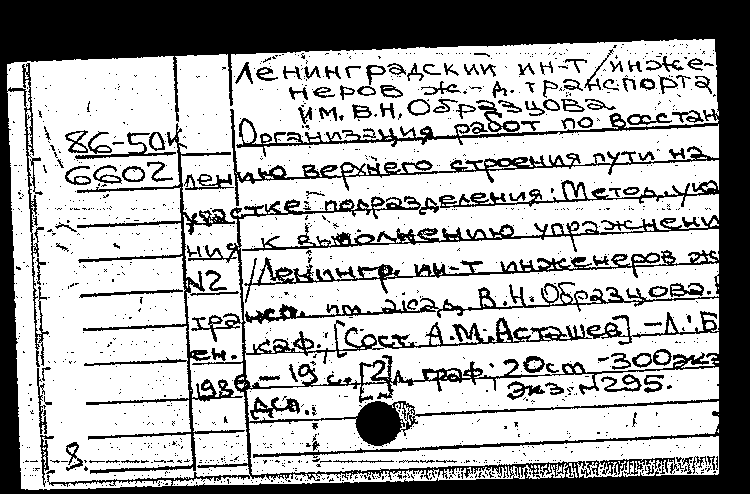 Ленинградский ин-т инже-
неров ж.-д. транспорта
им. В.Н. Образцова
86-50к Организация работ по восстан
6602 лению верхнего строения пути на
участке подразделения: Метод. ука
ния к выполнению упражнени
N2 /Ленингр. ин-т инженеров ж
трансп. им. акад. В.Н. Образцова.
ен. каф.; [Сост. А.М. Асташев] -Л.: Б
1986.-19 с., [2] л. граф.; 20cm -300экз
ДСП. Экз. N295.
8.